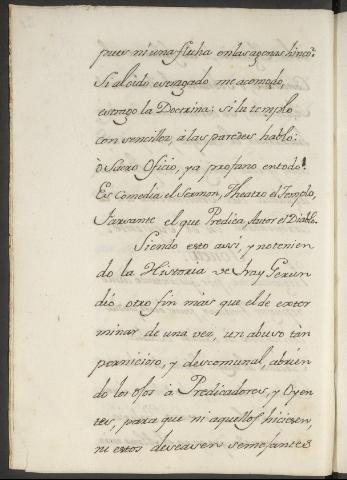 pues ni una flecha en las agenas hinco.
Si al oido estragado me acomodo,
estrago la Doctrina: si le templo
con sencillez, á las paredes hablo:
ò Sacro Oficio, ya profano en todo!
Es Comedia el Sermon, Theatro el Templo,
Farsante el que Predica, Autor el Diablo.
Siendo esto assi, y no tenien
do la Historia de Fray Gerun
dio otro fin mas que el de exter
minar de una vez, un abuso tàn
pernicioso, y descomunal, abrien
do los ojos à Predicadores, y Oyen
tes, para que ni aquellos hiciesen,
ni estos deseasen semejantes